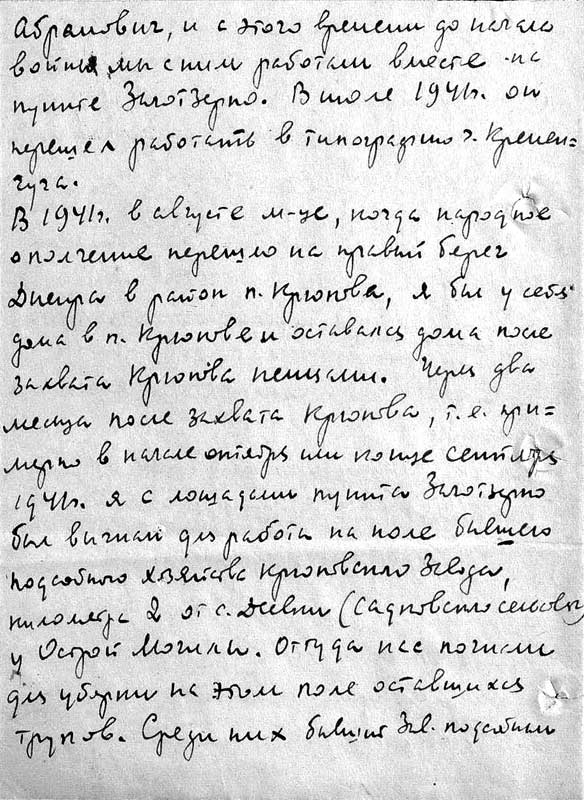 Абрамович, и с этого времени до начала
войны мы с ним работали вместе на
пункте Заготзерно. В июле 1941г. он
перешел работать в типографию г. Кремен=
чуга.
В 1941г. в августе м-це, когда народное
ополчение перешло на правый берег
Днепра в район п. Крюкова, я был у себя
дома в п. Крюкове и оставался дома после
захвата Крюкова немцами. Через два
месяца после захвата Крюкова, т.е. при=
мерно в начале октября или конце сентября
1941г. я с лошадами пункта Заготзерно
был выгнан для работы на поле бывшего
подсобного хозяйства Крюковского Завода,
километра 2 от с. (Садковского
у Острой Могилы. Оттуда нас погнали
для уборки на этом поле оставшихся
трупов. Среди них бывший Зав. подсобным